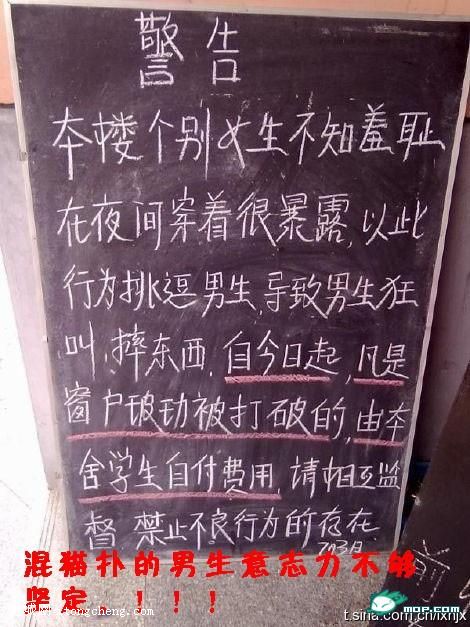 警告
本楼个别女生不知羞耻
在夜间穿着很暴露,以此
行为挑逗男生,导致男生狂
叫,摔东西,自今日起,凡是
窗户玻功被打破的,由本
舍学生自付费用,请相互监
督 禁止不良行为的存在
混猫扑的男生意志力不够
坚定 !!!
tongcheng.com
MOP.COM
t.sina.com.cn/ixnjx